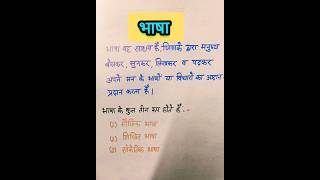 भाषा
भाषा वह साधन है, जिसके द्वारा मनुष्य
बोलकर, सुनकर, लिखकर व पढ़कर
अपने मन के भावों या विचारों का आदान
प्रदान करता है।
भाषा के कुल तीन रूप होते हैं...
(1) मौखिक भाषा
(2) लिखित भाषा
(3) सांकेतिक भाषा